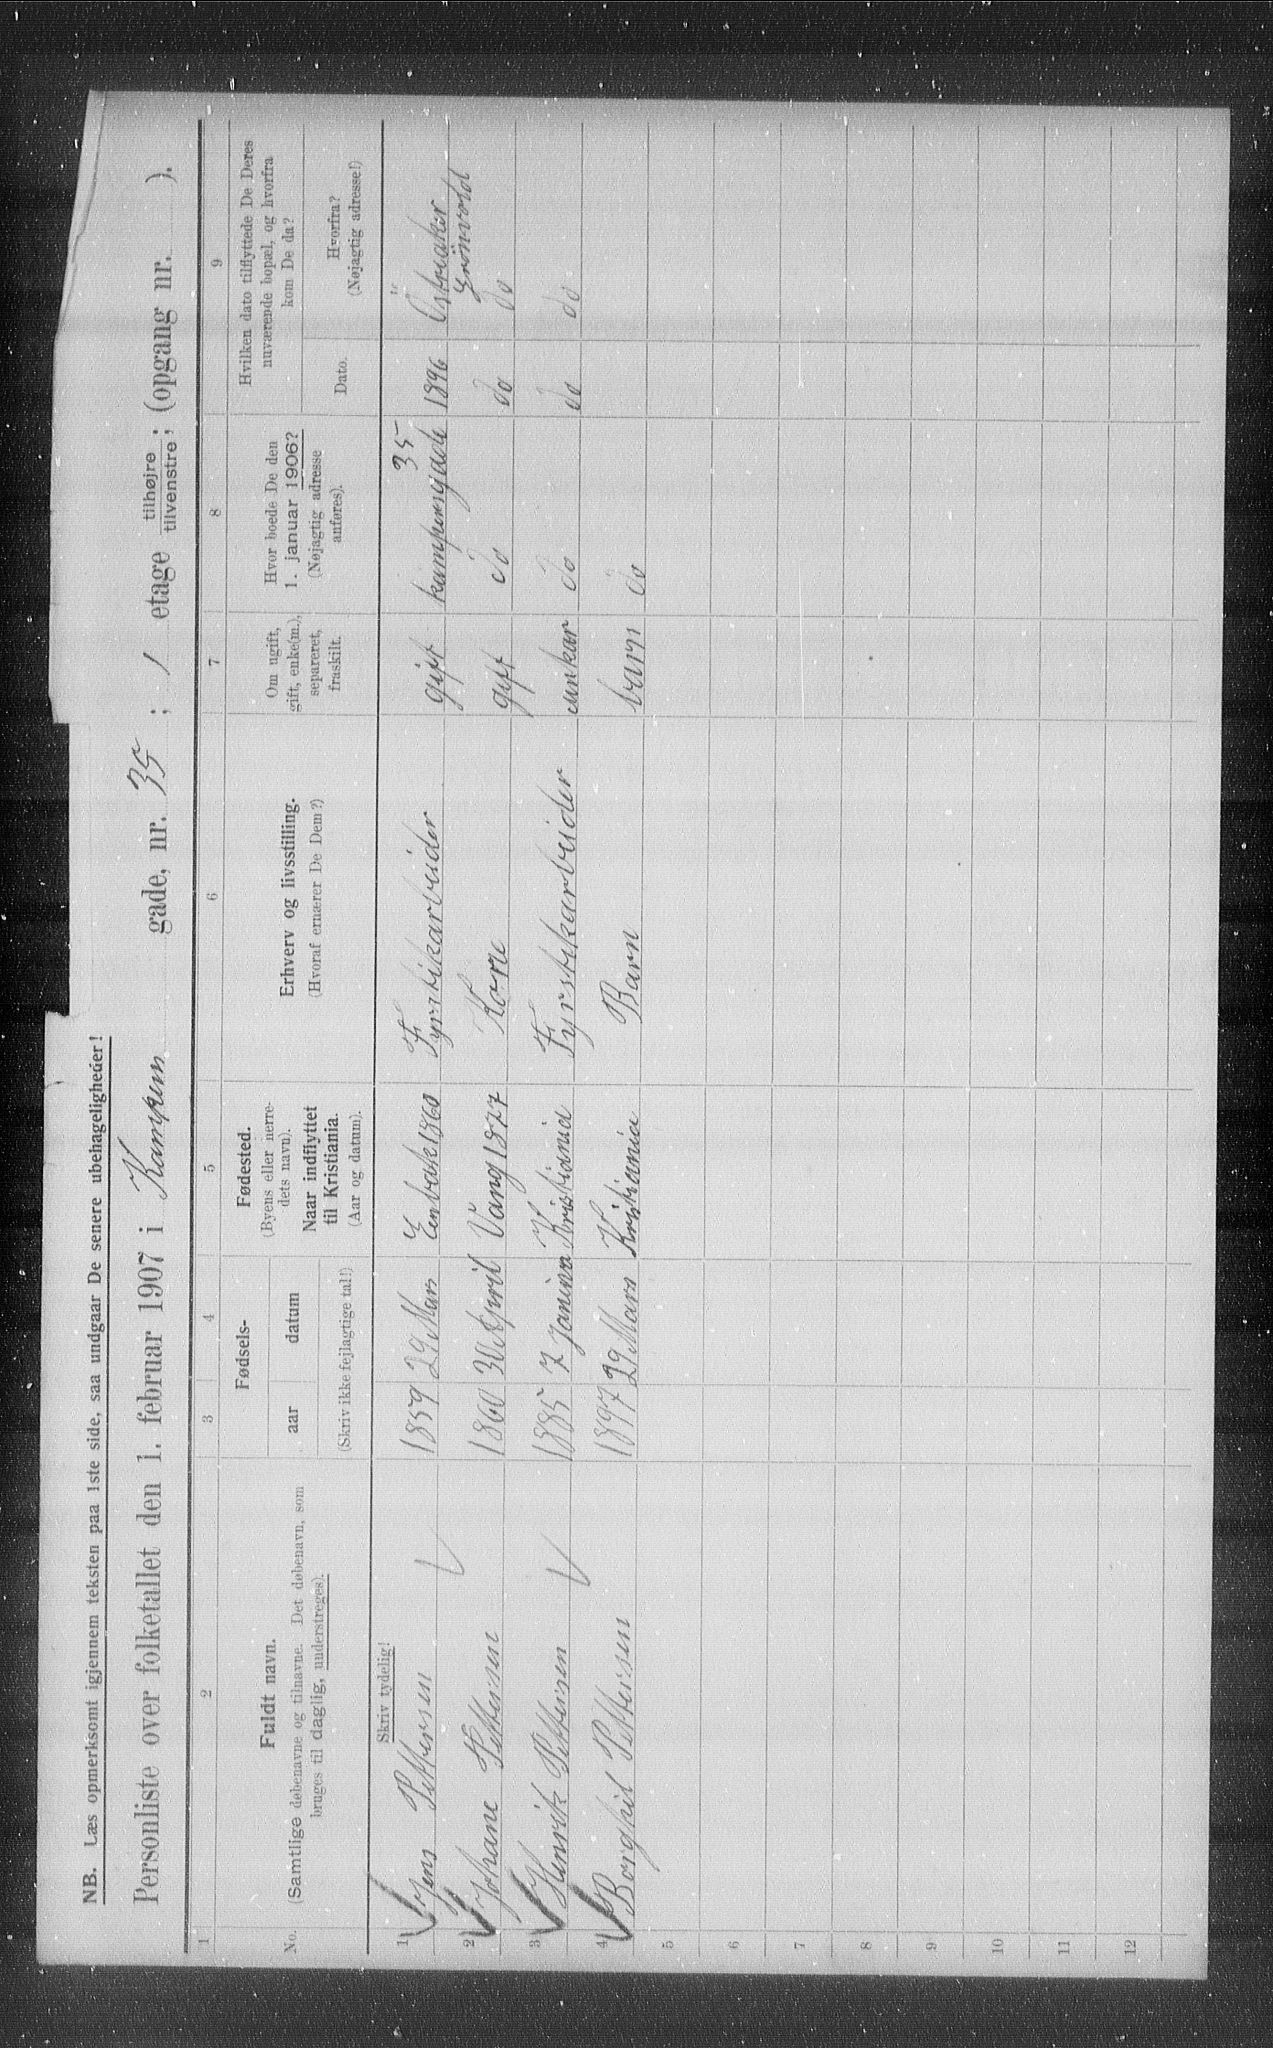 NB. Læs opmerksomt igjennem teksten paa 1ste side, saa undgaar De senere ubehageligheder!
Personliste over folketallet den 1. februar 1907 i Kampens gade, nr. 35 ; 1 etage tilhøjre tilvenstre ; (opgang nr. ).
1 2 3 4 5 6 7 8 9
No.
Fuldt navn.
(Samtlige døbenavne og tilnavne. Det døbenavn, som
bruges til daglig, understreges).
Fødsels-
aar datum
(Skriv ikke fejlagtige tal!)
Fødested.
(Byens eller herre-
dets navn).
Naar indflyttet
til Kristiania.
(Aar og datum).
Erhverv og livsstilling.
(Hvoraf ernærer De Dem?)
Om ugift,
gift, enke(m.),
separeret,
fraskilt.
Hvor boede De den
1. januar 1906?
(Nøjagtig adresse
anføres).
Hvilken dato tilflyttede De Deres
nuværende bopæl, og hvorfra
kom De da?
Dato.
Hvorfra?
(Nøjagtig adresse!)
Skriv tydelig!
35
1 Jens Pettersen 1859 29 Mars 1860 Fyrstikarbeider gift kampensgade 1896 Østreaker
Grønvold
2 Johane Pettersen 1860 30 April Vang 1877 Kone gift do do do
3 Henrik Pettersen 1885 7 Kristiania Fyrstikarbeider unkar do do do
4 Borghil Pettersen 1897 29 Mars Kristiania Barn barn do
5
6
7
8
9
10
11
12